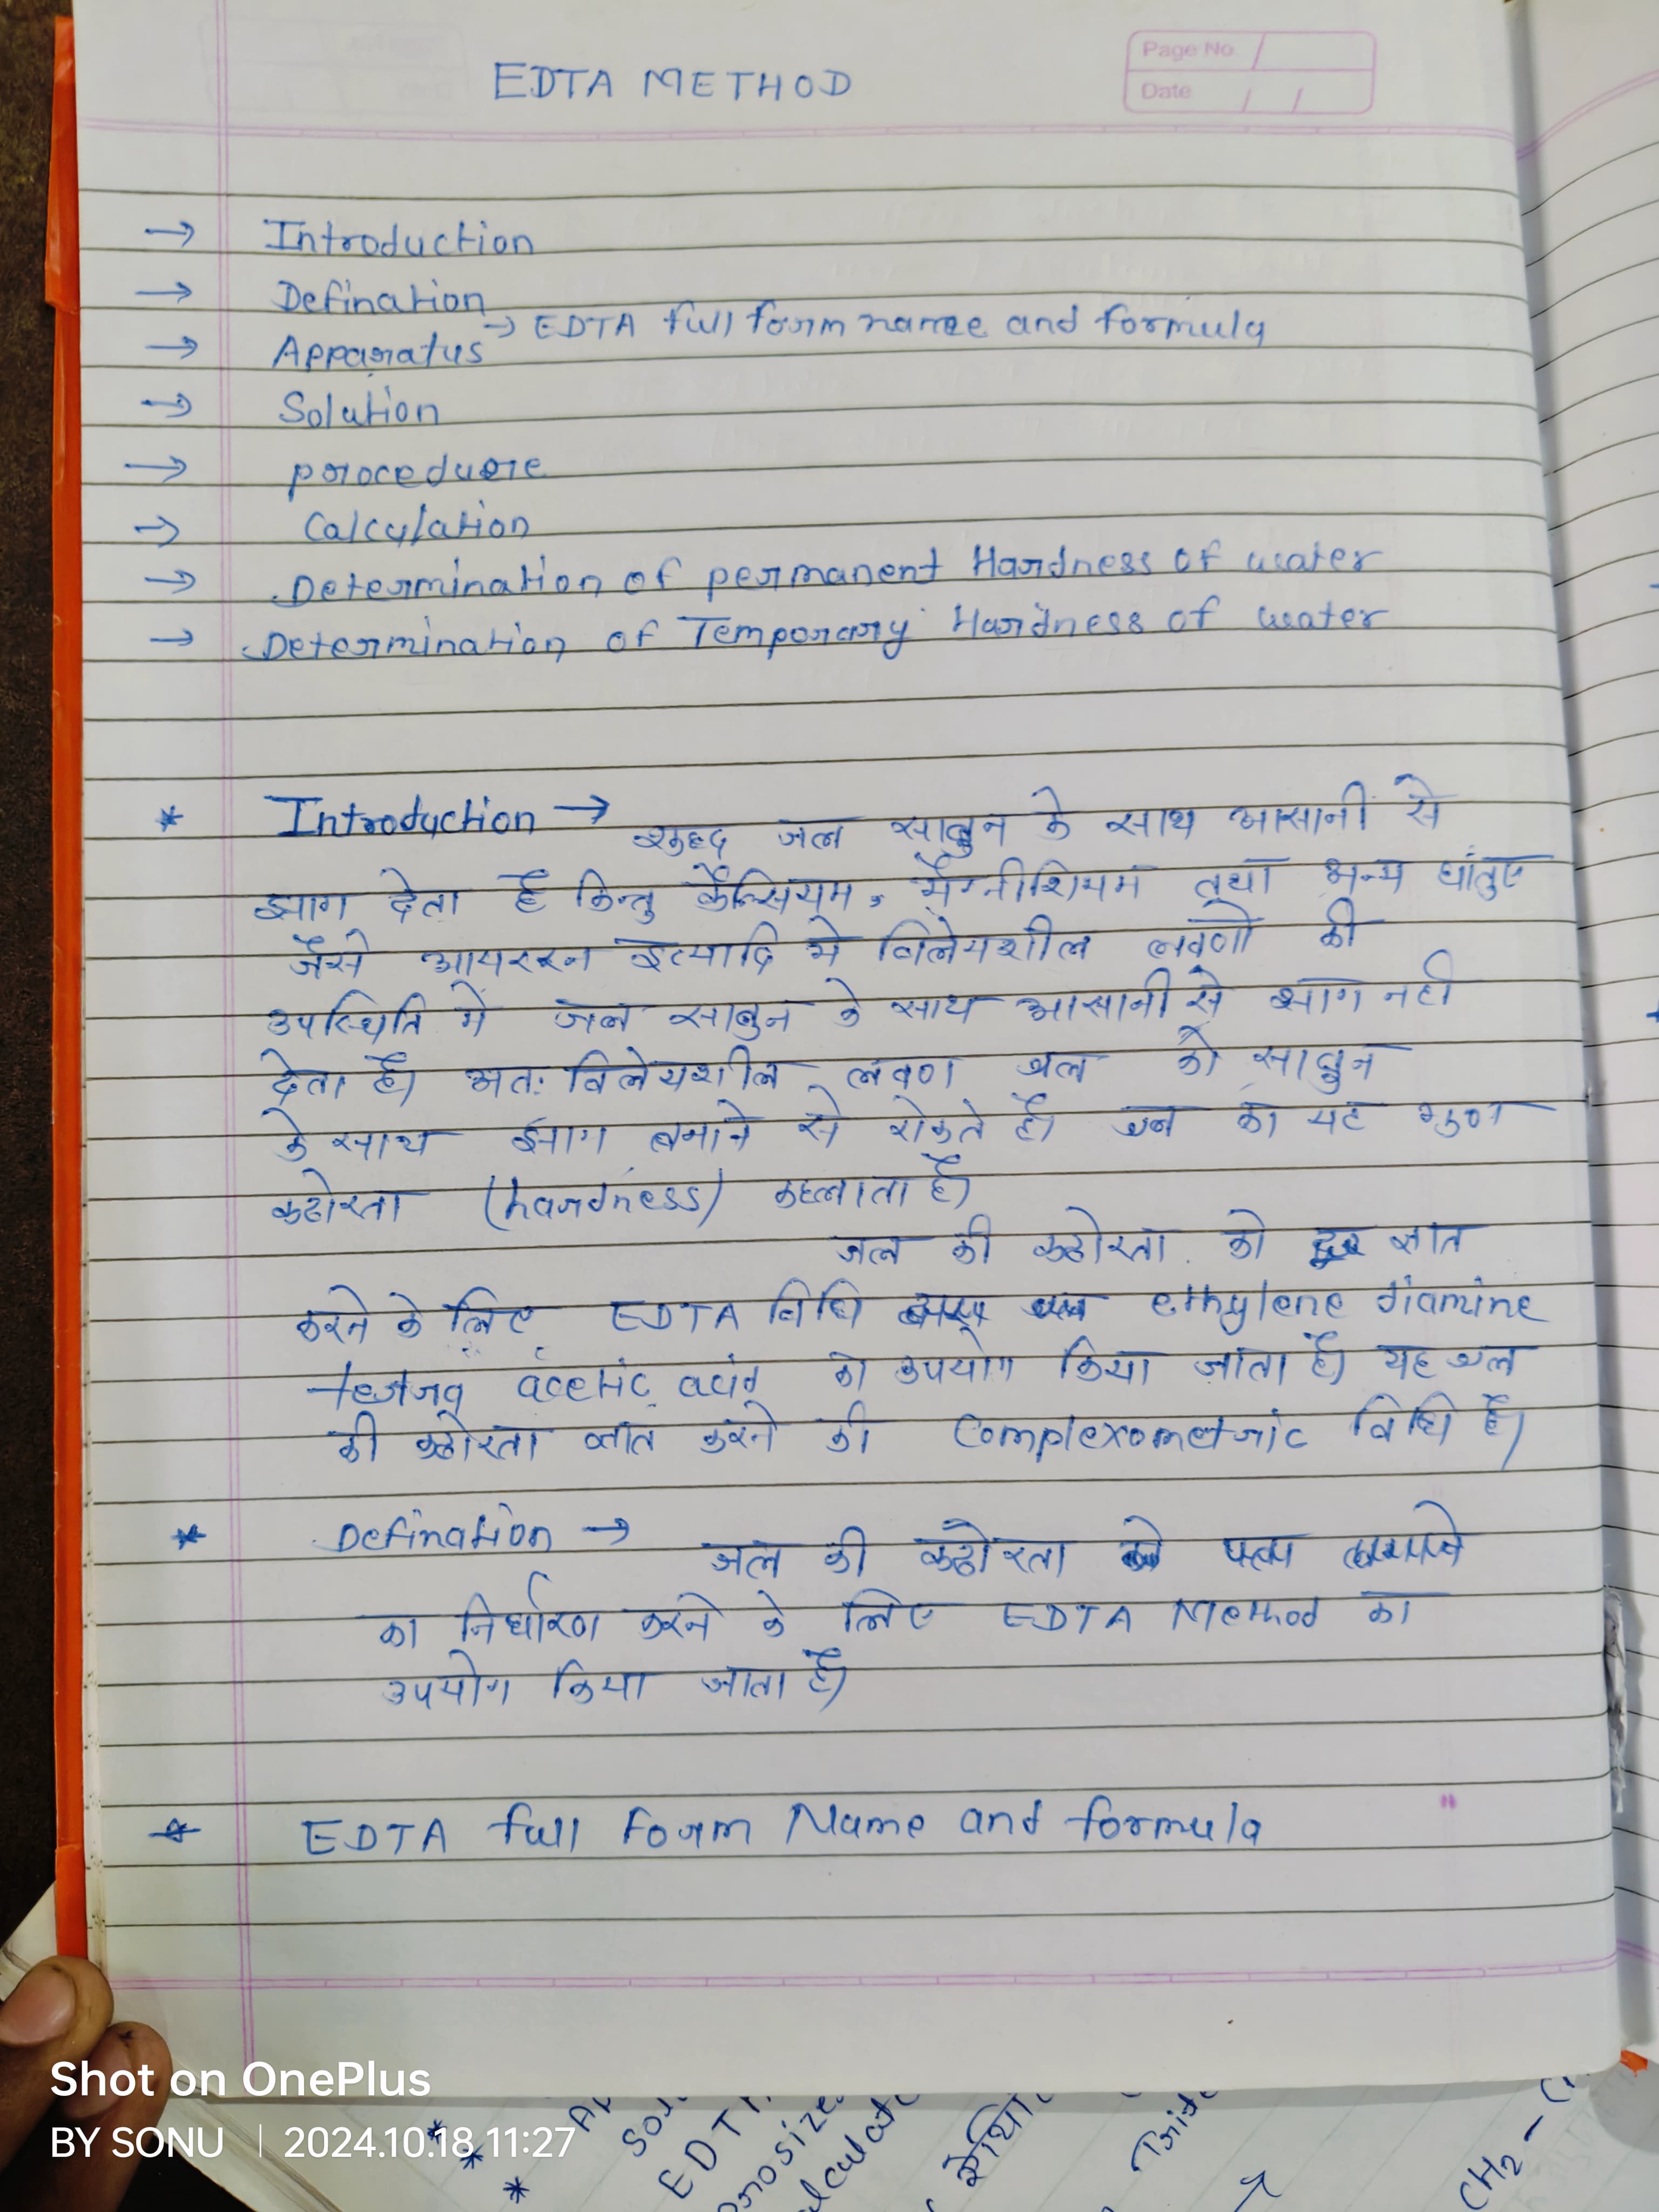 EDTA METHOD
Page No
Date / /
→ Introduction
→ Defination
→ EDTA full form name and formula
→ Apparatus
→ Solution
→ procedure
→ Calculation
→ Determination of permanent Hardness of water
→ Determination of Temporary Hardness of water
* Introduction → शुध्द जल साबुन के साथ आसानी से
झाग देता है किन्तु कैल्सियम, मैग्नीशियम तथा अन्य धातुए
जैसे आयरन इत्यादि मे विलेयशील लवणो की
उपस्थिति में जल साबुन के साथ आसानी से झाग नही
देता है। अतः विलेयशील लवण जल को साबुन
के साथ झाग बनाने से रोकते है। जल का यह गुण
कठोरता (hardness) कहलाता है।
जल की कठोरता को ज्ञात
करने के लिए EDTA विधि ethylene diamine
tetra acetic acid का उपयोग किया जाता है। यह जल
की कठोरता ज्ञात करने की Complexometric विधि है।
* Defination → जल की कठोरता
का निर्धारण करने के लिए EDTA Method का
उपयोग किया जाता है।
* EDTA full Form Name and formula
Shot on OnePlus
BY SONU | 2024.10.18 11:27
EDT
CH2-